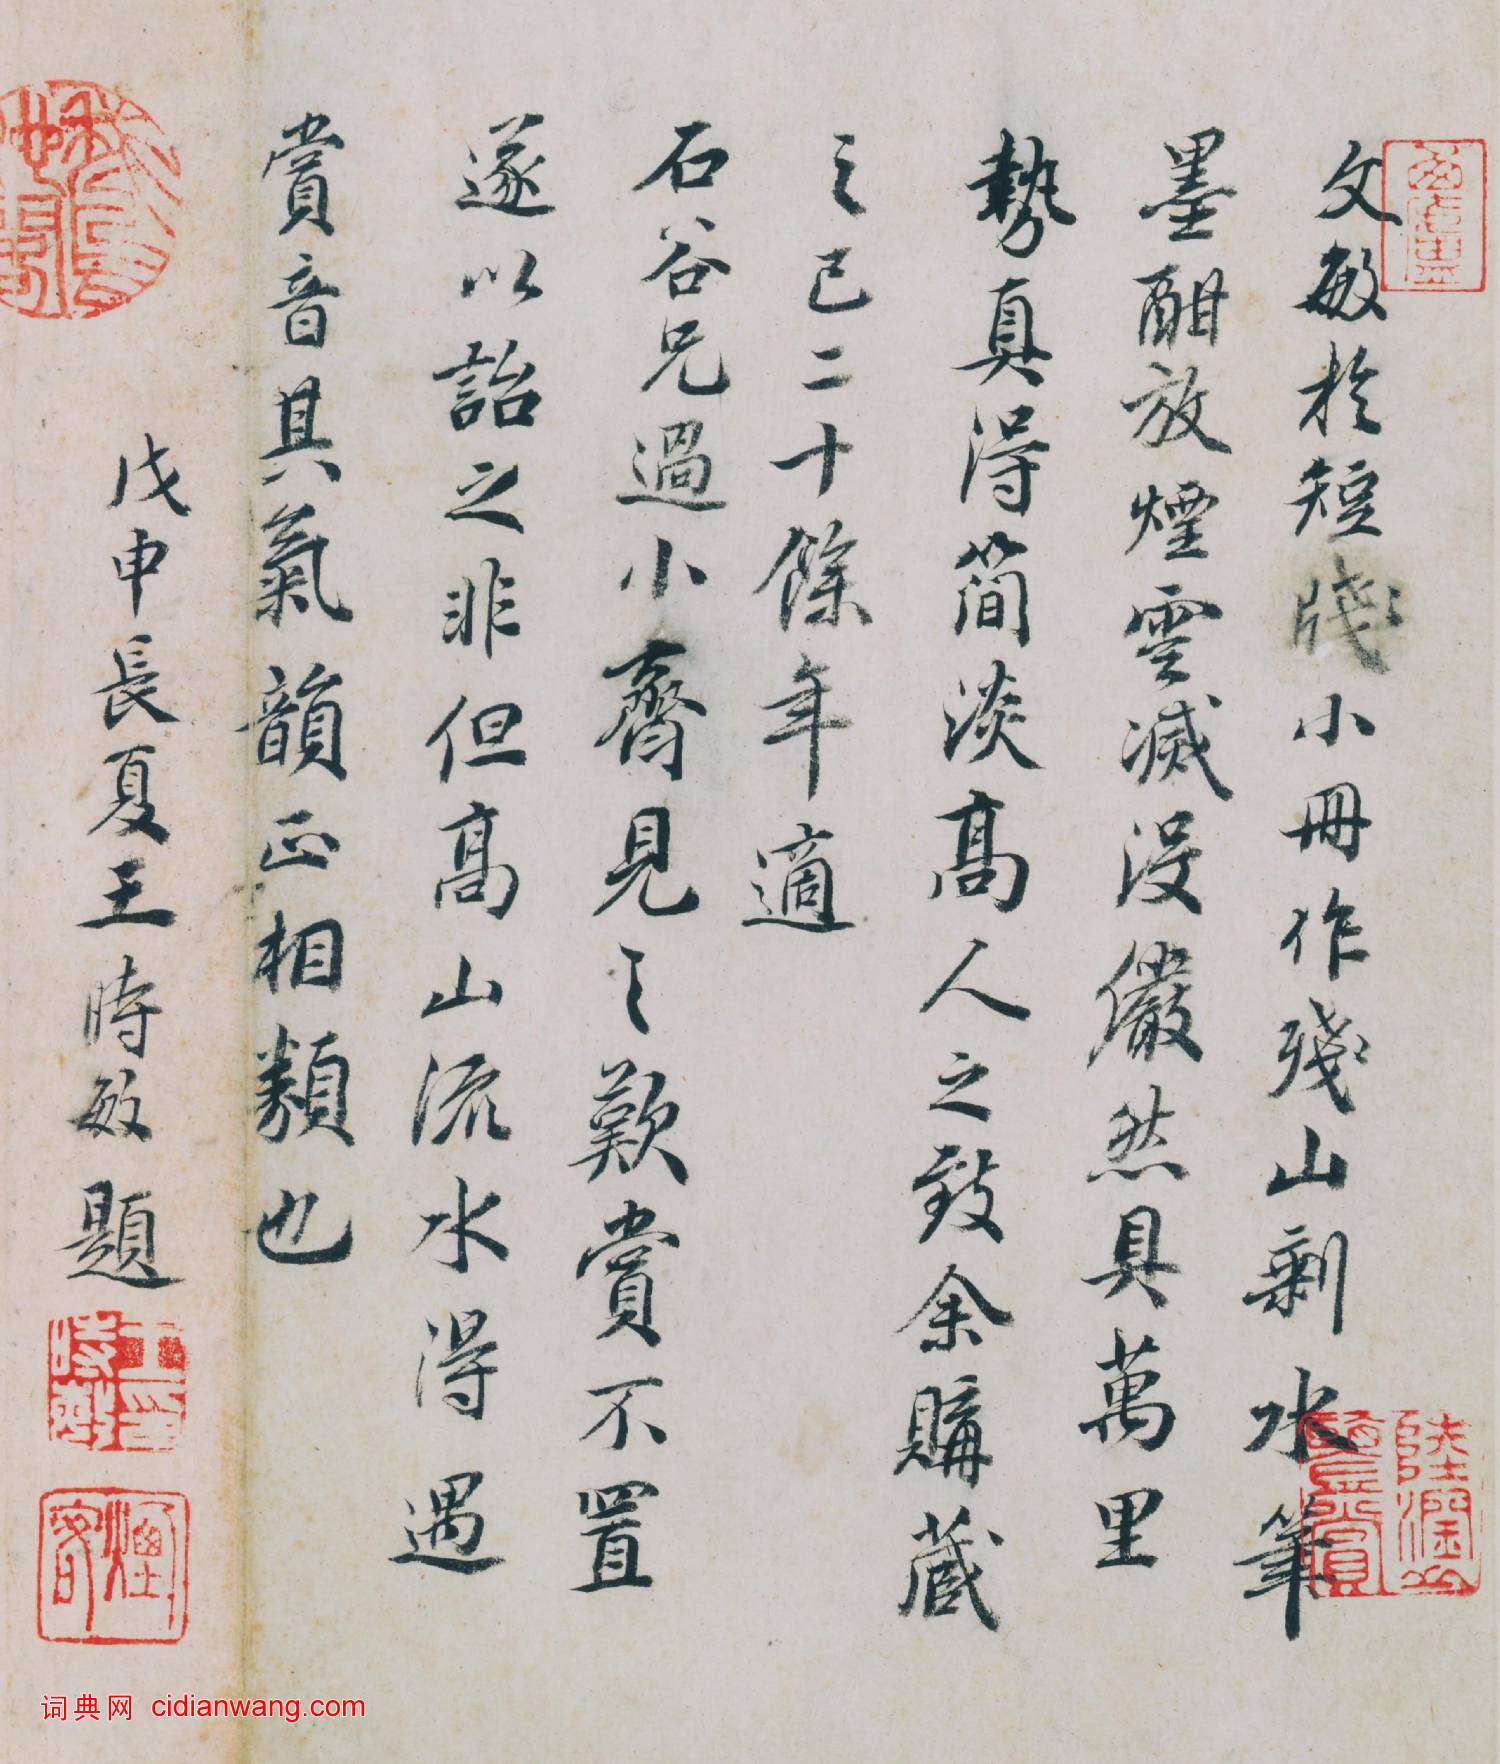 文敏於短牋小冊作殘山剩水筆
墨酣放煙雲滅沒儼然具萬里
勢真得簡淡高人之致余購藏
之已二十餘年適
石谷兄過小齋見之歎賞不置
遂以詒之非但高山流水得遇
賞音具氣韻正相類也
戊申長夏王時敏題
詞典网 cidianwang.com